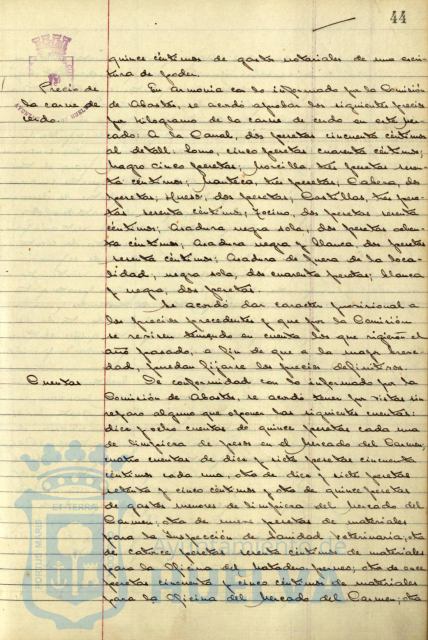 44
quince céntimos de gastos notariales de una escri-
tura de poder.
Precio de la carne de cerdo.
En armonía con lo informado por la Comisión
de Abastos, se acordó aprobar los siguientes precios
por kilogramo de la carne de cerdo en este mer-
cado: A la Canal, dos pesetas cincuenta céntimos
al detall: Lomo, cinco pesetas cuarenta céntimos;
Magro cinco pesetas; Morcilla tres pesetas
céntimos; Manteca, tres pesetas; Cabeza, dos
pesetas; Hueso, dos pesetas; Costillas, tres pese-
tas sesenta céntimos; Tocino, dos pesetas sesenta
céntimos; Asadura negra sola, dos pesetas
céntimos; Asadura negra y blanca, dos pesetas
sesenta céntimos; Asadura de fuera de la loca-
lidad, negra sola, dos cuarenta pesetas; blanca
y negra, dos pesetas.
Se acordó dar caracter provisional a
los precios precedentes y que por la Comisión
se revisen teniendo en cuenta los que rigieron el
año pasado, a fin de que a la mayor breve-
dad, puedan fijarse los precios definitivos.
Cuentas
De conformidad con lo informado por la
Comisión de Abastos, se acordó tener por vistas sin
reparo alguno que oponer las siguientes cuentas:
diez y ocho cuentas de quince pesetas cada una
de limpieza de pesos en el Mercado del Carmen;
cuatro cuentas de diez y siete pesetas cincuenta
céntimos cada una, otra de diez y siete pesetas
setenta y cinco céntimos y otra de quince pesetas
de gastos menores de limpieza del Mercado del
Carmen; otra de nueve pesetas de materiales
para la Inspección de Sanidad veterinaria; otra
de catorce pesetas treinta céntimos de materiales
para la Oficina del Matadero; otra de once
pesetas cincuenta y cinco céntimos de materiales
para la Oficina del Mercado del Carmen; otra